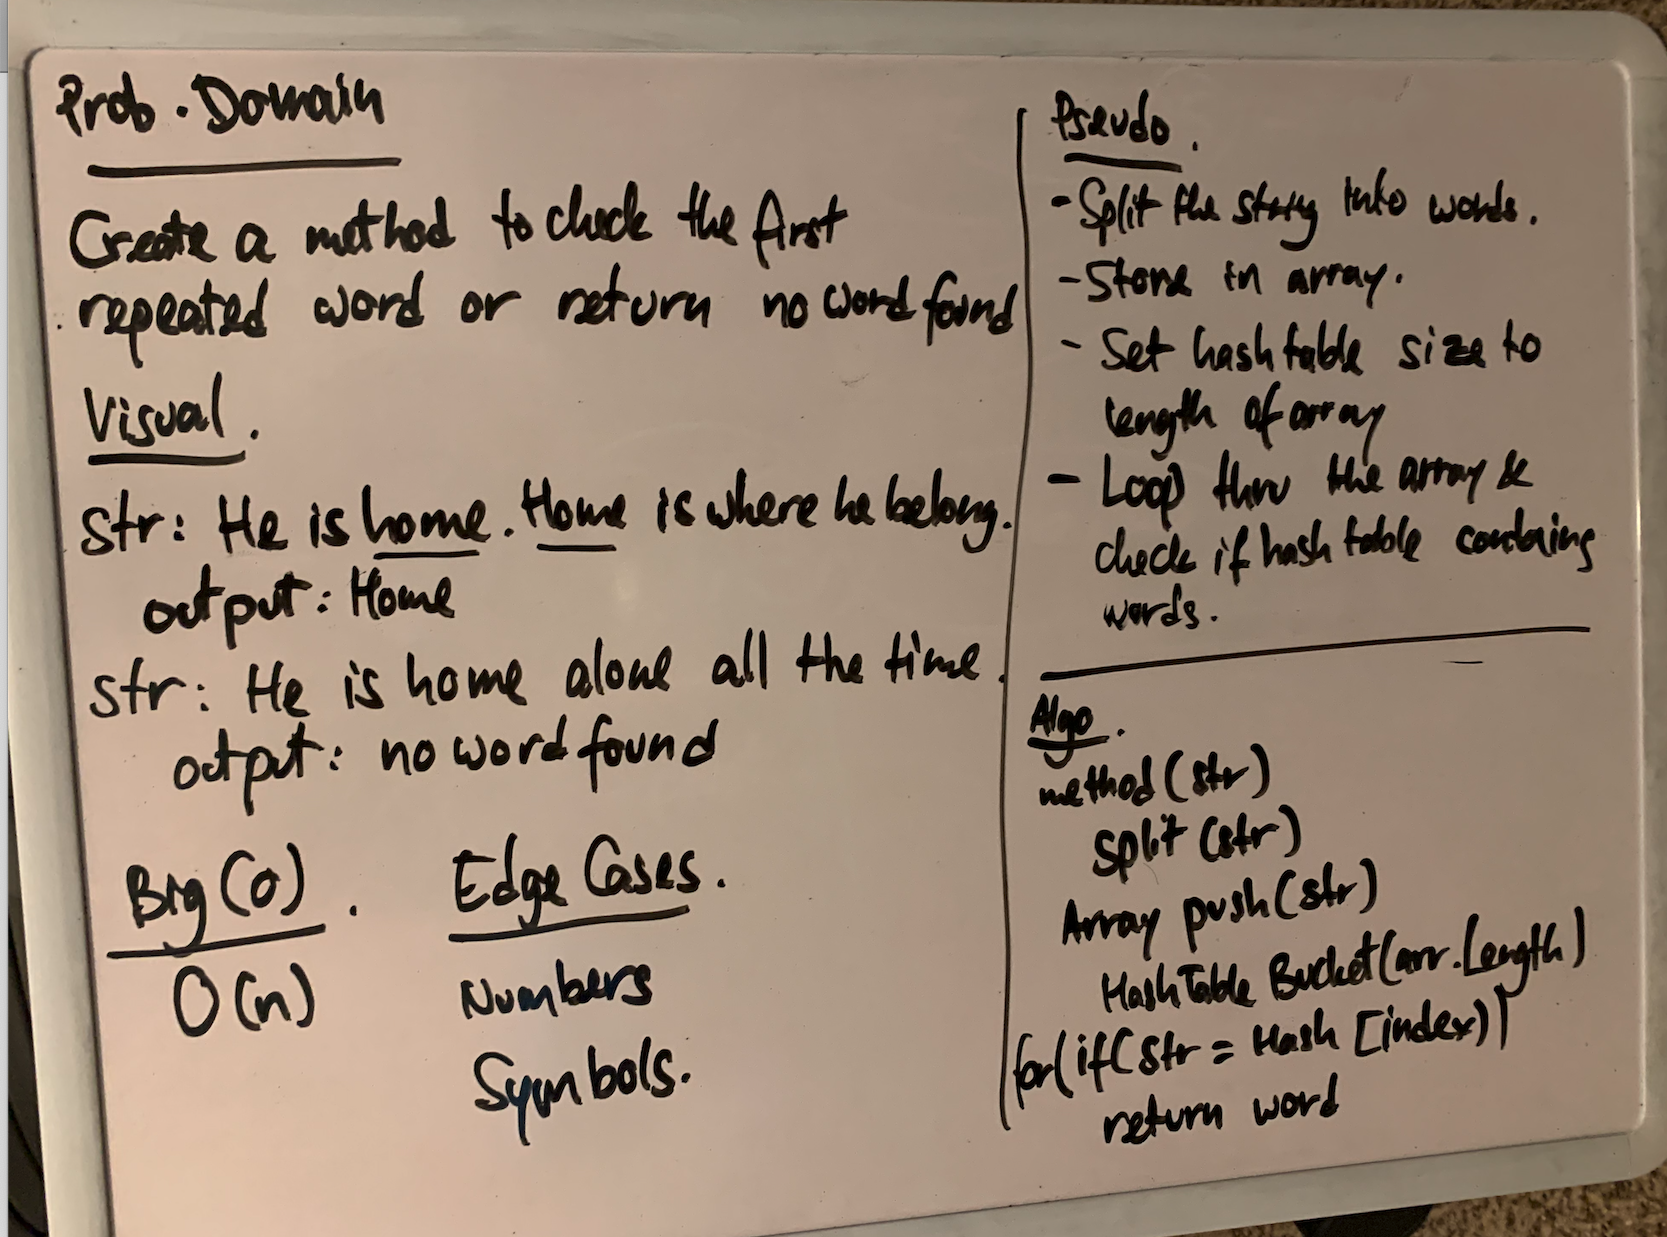 Prob. Domain
Create a method to check the first
repeated word or return no word found
Visual.
Str: He is home. Home is where he belong.
output: Home
Str: He is home alone all the time.
output: no word found
Big(O).
O(n)
Edge Cases.
Numbers
Symbols.
Pseudo.
- Split the string into words.
- Store in array.
- Set hash table size to
length of array
- Loop thru the array &
check if hash table containing
words.
Algo.
method(str)
split(str)
Array push(str)
HashTable Bucket(arr.Length)
for(if(str = Hash[index))
return word